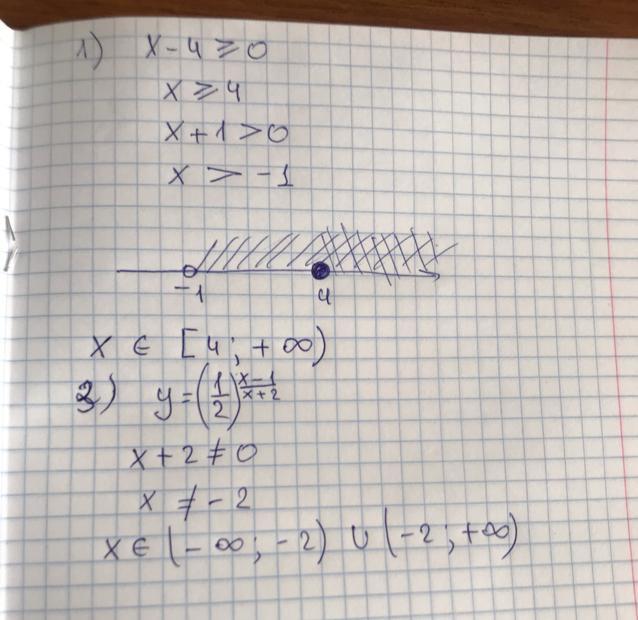 1) x - 4 ≥ 0
x ≥ 4
x + 1 > 0
x > -1
-1 4
x ∈ [4; +∞)
3) y = (1/2)^((x-1)/(x+2))
x + 2 ≠ 0
x ≠ -2
x ∈ (-∞; -2) ∪ (-2; +∞)